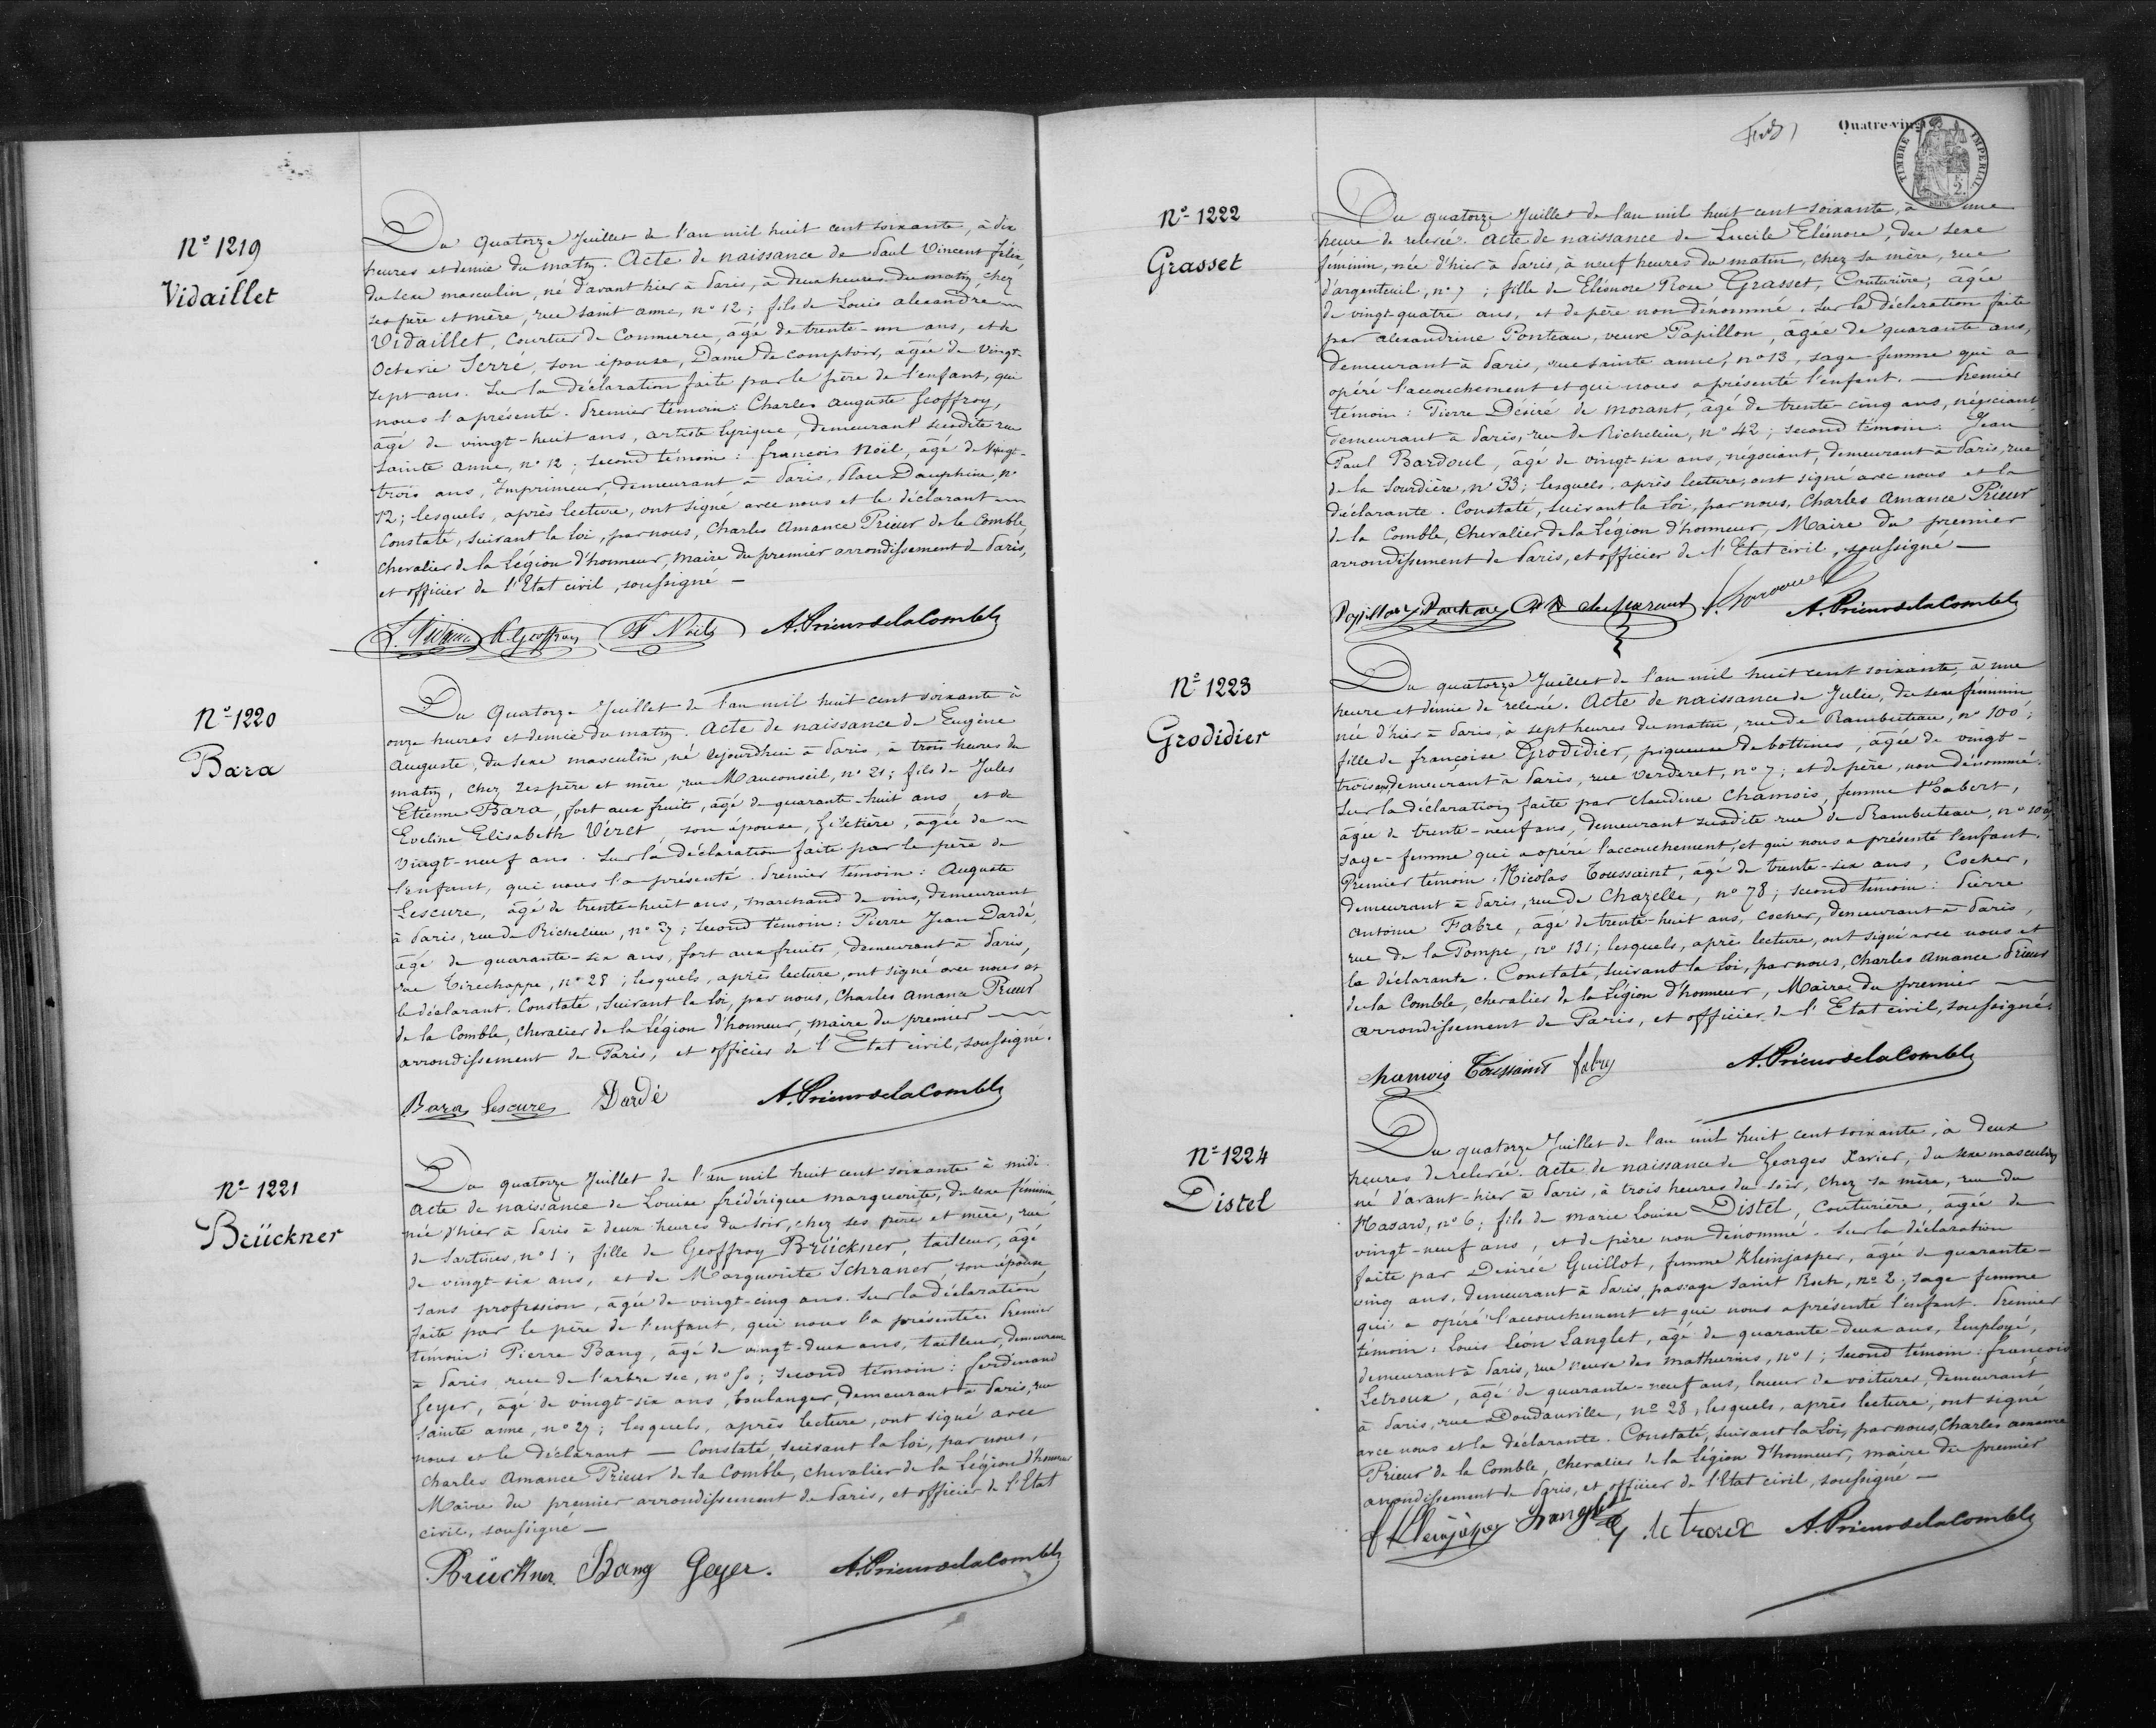 Nº 1219
Vidaillet
Du Quatorze Juillet de l'an mil huit cent soixante, à dix
heures et demie du matin. Acte de naissance de Paul Vincent Félix,
du sexe masculin, né d'avant hier à Paris, à deux heures du matin, chez
ses père et mère, rue Saint anne, nº 12; fils de Louis alexandre
Vidaillet, Courtier de Commerce, âgé de trente-un ans, et de
Octavie Serré, son épouse, Dame de comptoir, âgée de Vingt-
sept ans. Sur la déclaration faite par le père de l'enfant, qui
nous l'a présenté. Premier témoin: Charles Auguste Geoffroy,
âgé de vingt-huit ans, artiste lyrique, demeurant susdite rue
Sainte anne, nº 12; second témoin: françois Noël, âgé de Vingt-
trois ans, Imprimeur, demeurant à Paris, Place Dauphine, nº
12; lesquels, après lecture, ont signé avec nous et le déclarant
Constaté, suivant la loi, par nous, Charles Amance Prieur de la Comble,
chevalier de la Légion d'honneur, maire du premier arrondissement de Paris,
et officier de l'Etat civil, soussigné —
A. Geoffroy F Noël A. Prieur de la Comble
Nº 1220
Bara
Du Quatorze Juillet de l'an mil huit cent soixante à
onze heures et demie du matin. Acte de naissance de Eugène
Auguste, du sexe masculin, né aujourd'hui à Paris, à trois heures du
matin, chez ses père et mère, rue Mauconseil, nº 21; fils de Jules
Etienne Bara, fort aux fruits, âgé de quarante-huit ans, et de
Eveline Elisabeth Véret, son épouse, Giletière, âgée de
vingt-neuf ans. Sur la déclaration faite par le père de
l'enfant, qui nous l'a présenté. Premier témoin: Auguste
Lescure, âgé de trente-huit ans, marchand de vins, demeurant
à Paris, rue de Richelieu, nº 27; second témoin: Pierre Jean Dardé,
âgé de quarante-six ans, fort aux fruits, demeurant à Paris,
rue Tirechappe, nº 28; lesquels, après lecture, ont signé avec nous et
le déclarant. Constaté, suivant la loi, par nous, Charles Amance Prieur
de la Comble, chevalier de la Légion d'honneur, maire du premier
arrondissement de Paris, et officier de l'Etat civil, soussigné.
Bara Lescure Dardé A. Prieur de la Comble
Nº 1221
Brückner
Du quatorze Juillet de l'an mil huit cent soixante à midi.
Acte de naissance de Louise frédérique marguerite, du sexe féminin,
née d'hier à Paris à deux heures du soir, chez ses père et mère, rue
de Sartines, nº 1; fille de Geoffroy Brückner, tailleur, âgé
de vingt-six ans, et de Marguerite Schraner, son épouse,
sans profession, âgée de vingt-cinq ans. Sur la déclaration
faite par le père de l'enfant, qui nous l'a présentée. Premier
témoin: Pierre Bang, âgé de vingt-deux ans, tailleur, demeurant
à Paris, rue de l'arbre sec, nº 50; second témoin: ferdinand
Geyer, âgé de vingt-six ans, boulanger, demeurant à Paris, rue
Sainte anne, nº 27; lesquels, après lecture, ont signé avec
nous et le déclarant — Constaté, suivant la loi, par nous,
Charles Amance Prieur de la Comble, chevalier de la Légion d'honneur
Maire du premier arrondissement de Paris, et officier de l'Etat
civil, soussigné —
Brückner. Bang Geyer. A. Prieur de la Comble
Quatre-vingt
TIMBRE IMPERIAL
Nº 1222
Grasset
Du quatorze Juillet de l'an mil huit cent soixante, à une
heure de relevée. Acte de naissance de Lucile Eléonore, du sexe
féminin, née d'hier à Paris, à neuf heures du matin, chez sa mère, rue
d'argenteuil, nº 7; fille de Eléonore Rose Grasset, Couturière, âgée
de vingt-quatre ans, et de père non dénommé. Sur la déclaration faite
par alexandrine Ponteau, veuve Papillon, âgée de quarante ans,
demeurant à Paris, rue Sainte anne, nº 13, sage-femme qui a
opéré l'accouchement et qui nous a présenté l'enfant. — Premier
témoin: Pierre Désiré de morant, âgé de trente-cinq ans, négociant,
demeurant à Paris, rue de Richelieu, nº 42; second témoin: Jean
Paul Bardoul, âgé de vingt-six ans, négociant, demeurant à Paris, rue
de la Sourdière, nº 33; lesquels, après lecture, ont signé avec nous et la
déclarante. Constaté, suivant la loi, par nous, Charles Amance Prieur
de la Comble, Chevalier de la Légion d'honneur, Maire du premier
arrondissement de Paris, et officier de l'Etat civil, soussigné —
A. Prieur de la Comble
Nº 1223
Grodidier
Du quatorze Juillet de l'an mil huit cent soixante, à une
heure et demie de relevée. Acte de naissance de Julie, du sexe féminin
née d'hier à Paris, à sept heures du matin, rue de Rambuteau, nº 100;
fille de françoise Grodidier, piqueuse de bottines, âgée de vingt-
trois ans, demeurant à Paris, rue Verderet, nº 7; et de père, non dénommé.
Sur la déclaration faite par Claudine Chamois, femme Habert,
âgée de trente-neuf ans, demeurant susdite rue de Rambuteau, nº 100,
sage-femme qui a opéré l'accouchement, et qui nous a présenté l'enfant.
Premier témoin: Nicolas Toussaint, âgé de trente-six ans, Cocher,
demeurant à Paris, rue de Chazelle, nº 78; second témoin: Pierre
antoine Fabre, âgé de trente-huit ans, cocher, demeurant à Paris,
rue de la Pompe, nº 131; lesquels, après lecture, ont signé avec nous et
la déclarante. Constaté, suivant la loi, par nous, Charles Amance Prieur
de la Comble, chevalier de la Légion d'honneur, Maire du premier
arrondissement de Paris, et officier de l'Etat civil, soussigné.
Chamois Toussaint A. Prieur de la Comble
Nº 1224
Distel
Du quatorze Juillet de l'an mil huit cent soixante, à deux
heures de relevée. Acte de naissance de Georges Xavier, du sexe masculin,
né d'avant-hier à Paris, à trois heures du soir, chez sa mère, rue du
Hasard, nº 6; fils de marie Louise Distel, Couturière, âgée de
vingt-neuf ans, et de père non dénommé. Sur la déclaration
faite par Désirée Guillot, femme Kleinjasper, âgée de quarante-
cinq ans, demeurant à Paris, passage Saint Roch, nº 2, sage-femme
qui a opéré l'accouchement et qui nous a présenté l'enfant. Premier
témoin: Louis Léon Langlet, âgé de quarante-deux ans, Employé,
demeurant à Paris, rue neuve des mathurins, nº 1; second témoin: françois
Letroux, âgé de quarante-neuf ans, loueur de voitures, demeurant
à Paris, rue Doudauville, nº 28; lesquels, après lecture, ont signé
avec nous et la déclarante. Constaté, suivant la loi, par nous, Charles amance
Prieur de la Comble, chevalier de la légion d'honneur, maire du premier
arrondissement de Paris, et officier de l'Etat civil, soussigné —
f Kleinjasper letroux A. Prieur de la Comble